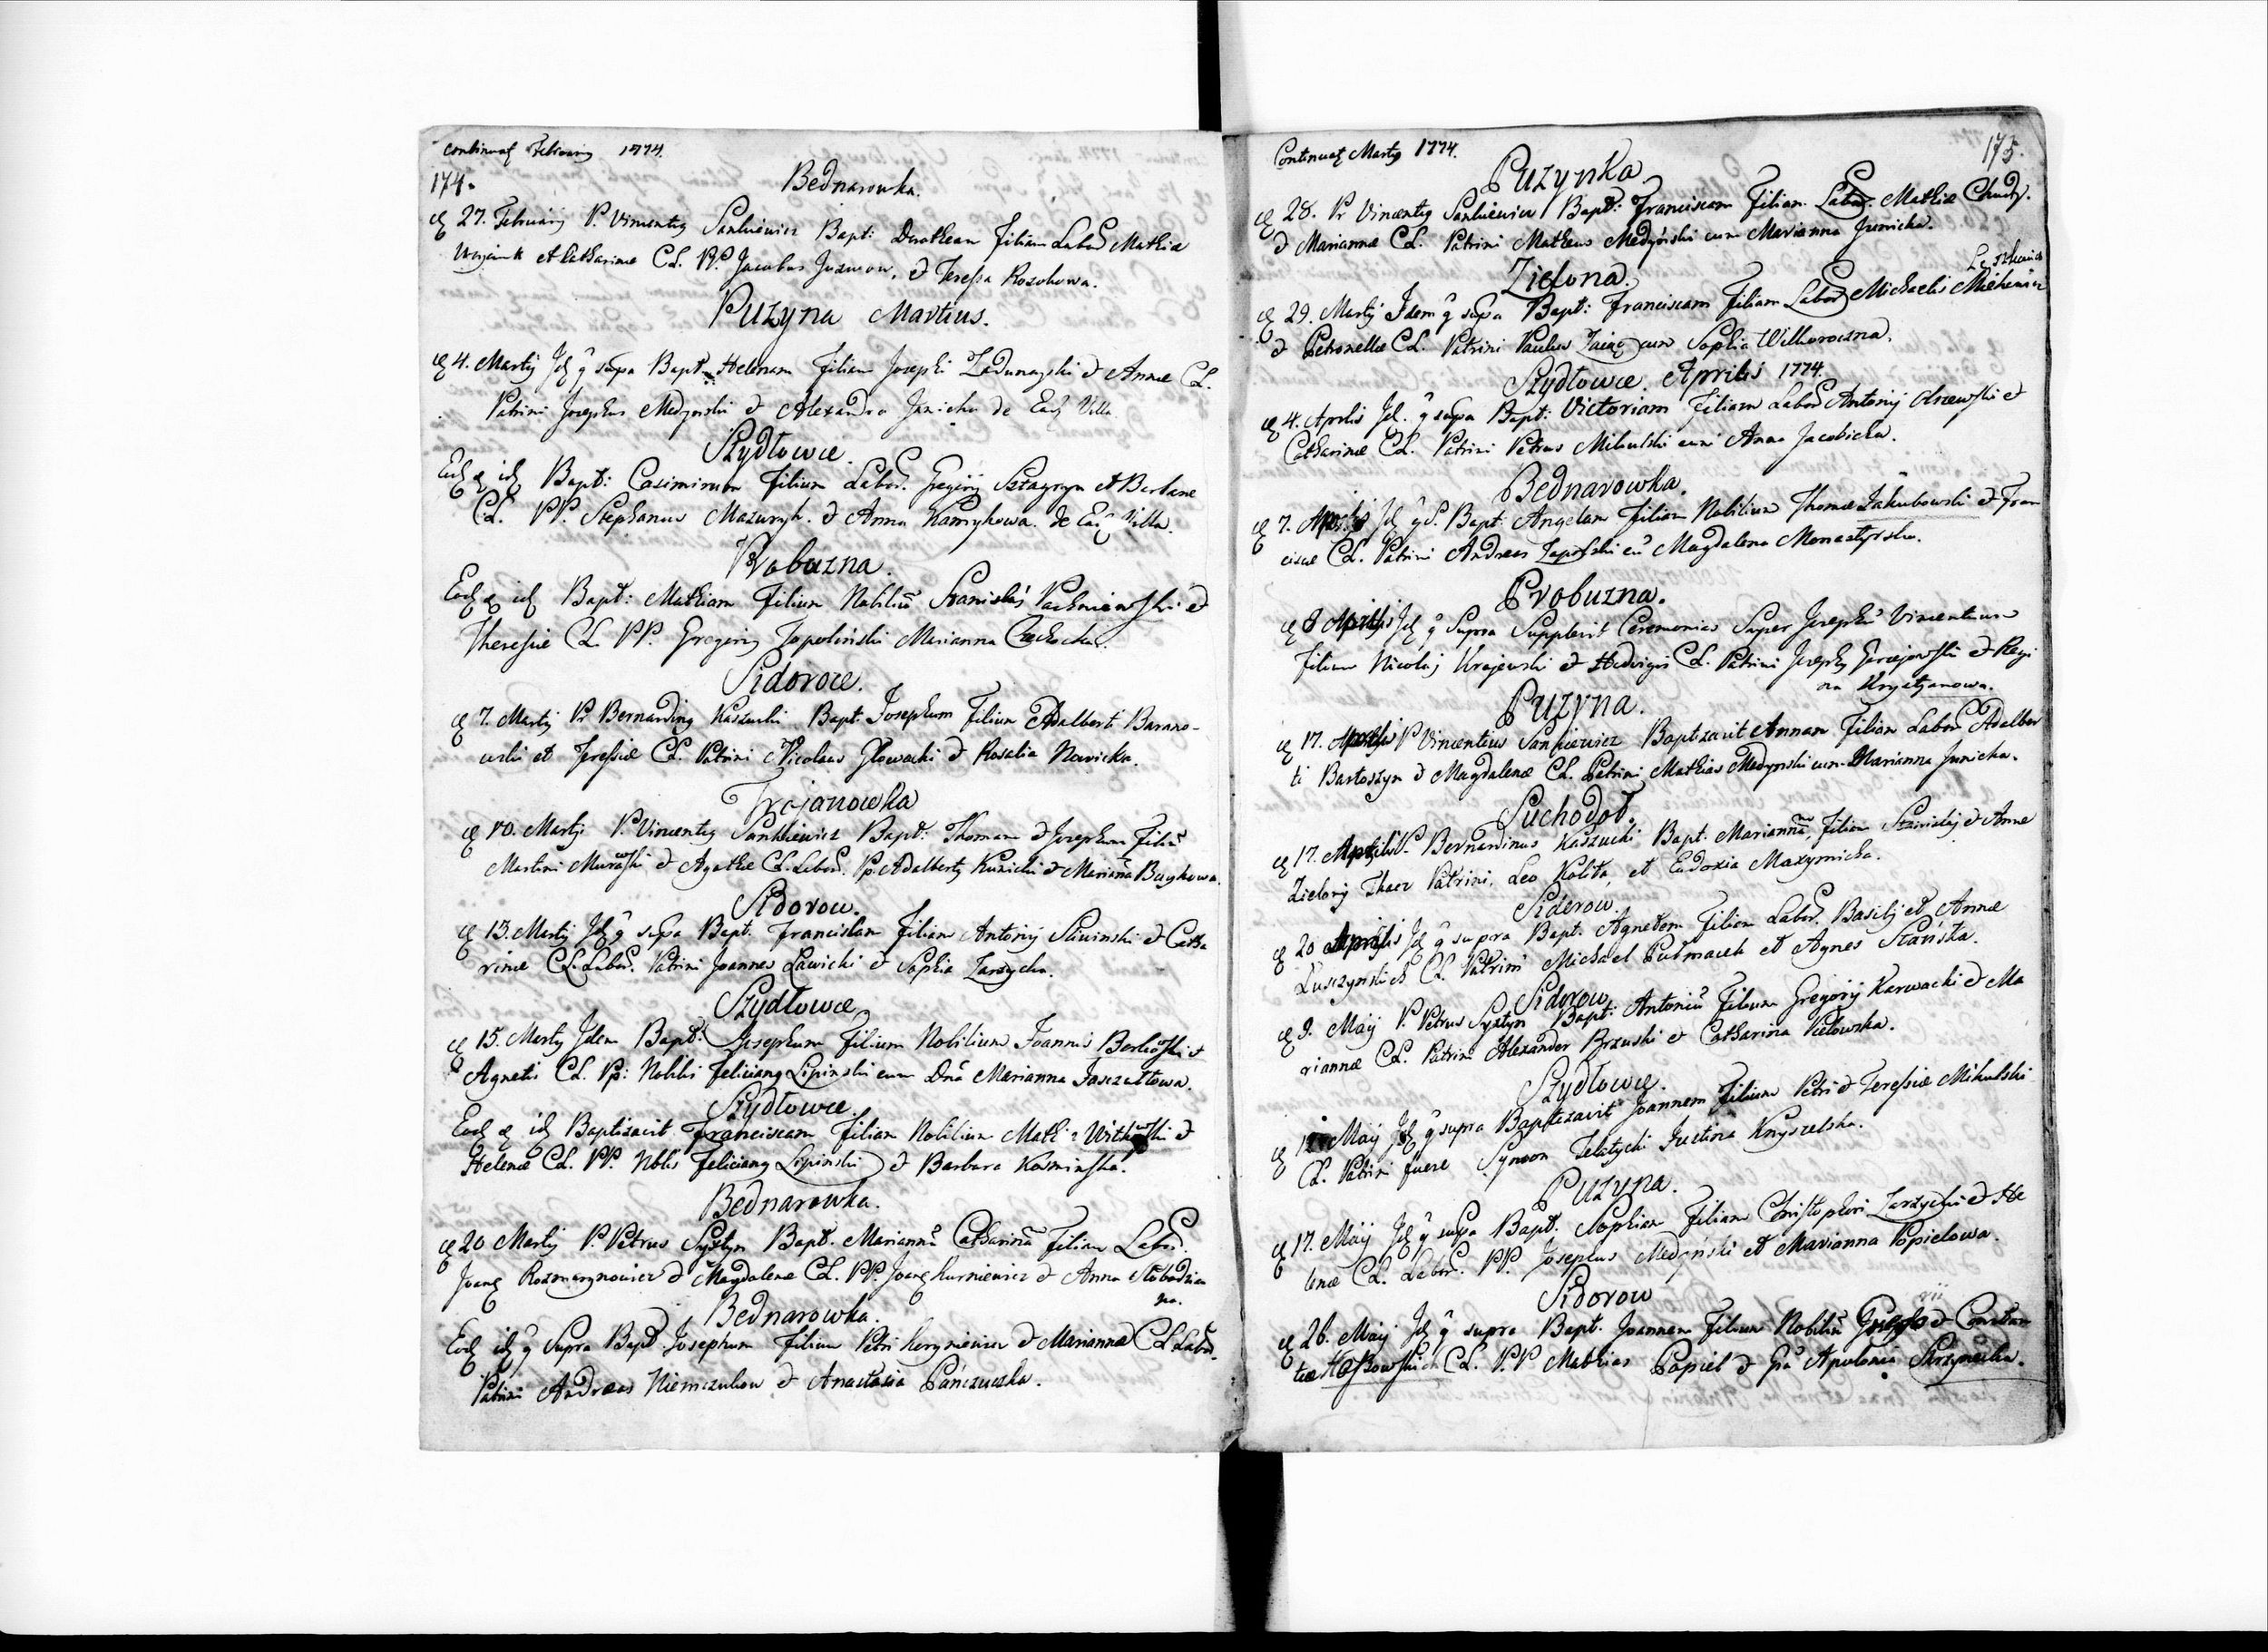 continuat Februarij 1774.
174.
Bednarowka.
27. Februarij P. Vincentius Sankiewicz Bapt: Filiam Labor Mathiæ
Woyciuk et Catharinæ C.L. P.P. Jacobus et Teressa Rozohowa.
Puzyna Martius.
4. Martij Id q supa Bapt. Helenam filiam Josephi Zadunayski et Annæ C.L.
Patrini Josephus Medynski et Alexandra Janicka de Ead Villa.
Szydlowce.
Eod id Bapt: Casimirum filium Labor. Gregorij et Barbaræ
C.L. PP. Stephanus Mazuryk et Anna Kamykowa de Ead Villa.
Probuzna.
Eod id Bapt: Mathiam Filium Nobiliũ Stanislai Pachniewski et
Theresiæ C.L. PP. Gregorius Topoliński Marianna Czechocka.
Sidorow.
7. Martij Pr Bernardinus Kaszucki Bapt. Josephum Filium Adalberti Barano-
wski et Teressiæ C.L. Patrini Nicolaus Głowacki et Rosalia Nowicka.
Trojanowka
10. Martij P. Vincentius Sankiewicz Bapt: Thomam et Josephum Filiũ
Martini Murawski et Agathæ C.L. Labor. Pp. Adalbertus Kunicki et Marianna
Sidorow.
13. Martij Id q supa Bapt. Franciscam filiam Antonij Sliwinski et Catha
rinæ C.L. Labor. Patrini Joannes Lawicki et Sophia Zarzycka.
Szydłowce
15. Martij Idem Bapt. Josephum Filium Nobilium Joannis et
Agnetis C.L. Pp: Nobilis Felicianus Lipinski cum Dnã Marianna Jaszczułtowa.
Szydłowce.
Eod id Baptizavit Franciscam filiam Nobilium Mathiæ Witkowski et
Helenæ C.L. PP. Nblis Felicianus Lipinski et Barbara Kosminska.
Bednarowka.
20 Martij P. Petrus Systyn Bapt. Mariannã Catharinã Filiam Labor.
Joannis Rozmarynowicz et Magdalenæ C.L. PP. Joannes Kurniewicz et Anna Słobodzian
na.
Bednarowka.
Eod id q Supra Bapt Josephum Filium Petri et Mariannæ C.L. Labor.
Patrini Andreas Niemczukow et Anastasia Panczuszka.
Continuat Martij 1774.
175.
Puzynka
28. Pr Vincentius Sankiewicz Bapt: Franciscam Filiam Labor. Mathiæ Chudy.
et Mariannæ C.L. Patrini Matheus Medyński cum Marianna Junicka.
Zielona.
29. Martij Idem q supa Bapt: Franciscam Filiam Labor Michaelis
et Petronellæ C.L. Patrini Paulus Zaiąc cum Sophia Wilhoroczna.
Szydłowce. Aprilis 1774.
4. Aprilis Id. q supa Bapt: Victoriam filiam Labor Antonij Olszewski et
Catharinæ C.L. Patrini Petrus Mikulski cum Anna Jacobicka.
Bednarowka.
7. Aprilis Id q S. Bapt. Angelam filiam Nobilium Thomæ Jakubowski et Fran
ciscæ C.L. Patrini Andreas Zapolski cũ Magdalena Monastyrska.
Probuzna.
8 Aprilis Id q Supra Supplevit Ceremonias Super Josephũ Vincentium
filium Nicolaj Krajewski et Hedvigis C.L. Patrini Josephus et Regi
na Krystyanowa.
Puzyna.
17. Aprilis P Vincentius Sankiewicz Baptizavit Annam Filiam Labor Adalber
ti Bartoszyn et Magdalenæ C.L. Patrini Mathias Medynski cum Marianna Junicka.
Suchodoł.
17. Aprilis P. Bernardinus Kaszucki Bapt. Mariannã, filiam Stanislaj et Annæ
Zielony Thacz Patrini, Leo Kolita, et Eudoxia Maxymicka.
Siderow
20 Aprilis Id q supra Bapt: Agnetem Filiam Labor. Basilij et Annæ
Łuszczynskich C.L. Patrini Michael Putmacek et Agnes Stańska.
Sidorow
9. Maij P. Petrus Systyn Bapt: Antoniũ filium Gregorij Karwacki et Ma
riannæ C.L. Patrini Alexander Brzuski et Catharina Vietowska.
Szydłowce.
12 Maij Id q supra Baptizavit Joannem filium Petri et Teressiæ Mikulski
C.L. Patrini fuere Symon Telatycki Justina Knyszelska.
Puzyna.
17. Maij Id q supa Bapt. Sophiam filiam Christophori Zarzycki et He
lenæ C.L. Labor. PP. Josephus Medyński et Marianna Popielowa.
Sidorow
26. Maij Id q supra Bapt. Joannem filium Nobiliũ et Constan
tiæ C.L. P.P Mathias Popiel et Apolonia Skrzynecka.